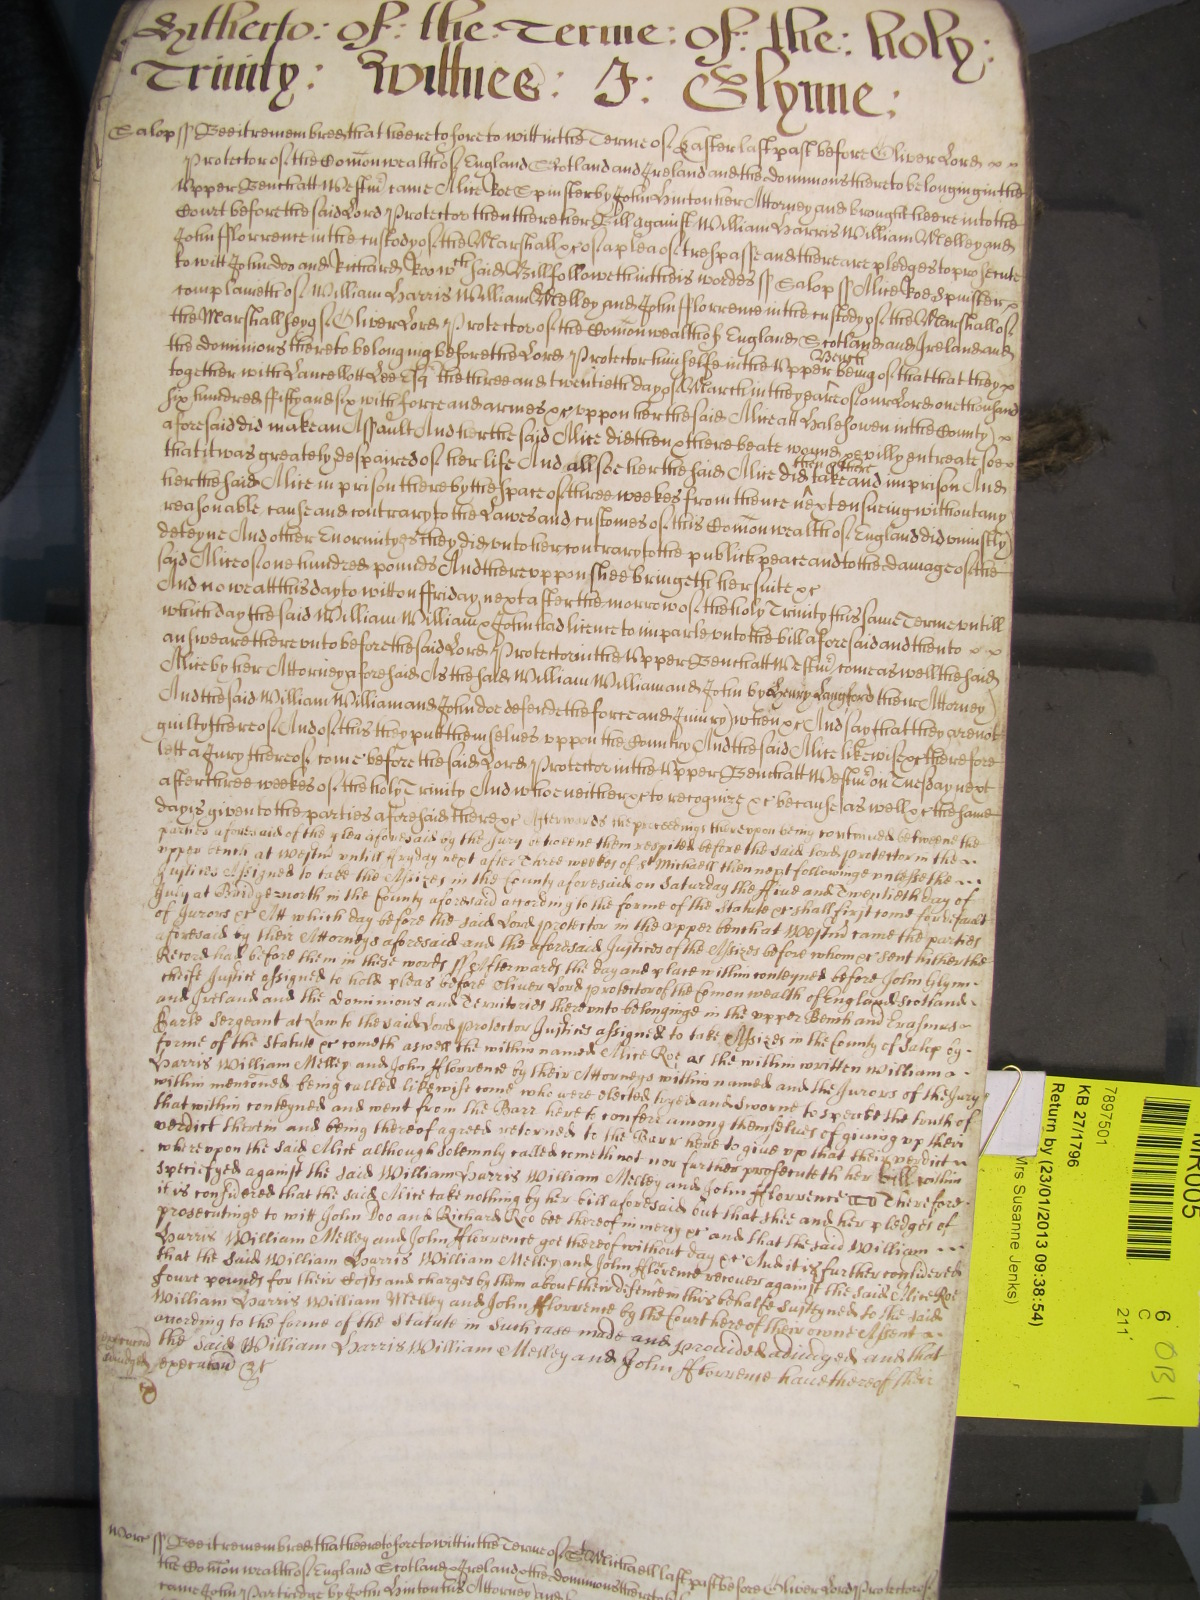 Hitherto: of: the: Terme: of: the: holy:
Trinity: Wittnes: J: Glynne:
Salop ss Bee it remembred that heeretofore to witt in the Terme of Easter last past before Oliver Lord
Protector of the Comonwealth of England Scotland and Ireland and the dominions thereto belonging in the
Upper Bench att Westmr came Alice Roe Spinster by John Hinton her Attorney and brought heere into the
Court before the said Lord Protector then there her Bill against William Harris William Melley and
John Fflorrence in the custody of the Marshall &c of a plea of trespasse and there are pledges to prosecute
to witt John doo and Richard Roo wch said Bill followeth in theis wordes ss Salop ss Alice Roe Spinster
complaineth of William Harris William Melley and John Fflorrence in the custody of the Marshall of
the Marshallsey of Oliver Lord Protector of the Comonwealth of England Scotland and Ireland and
the dominions thereto belonging before the Lord Protector himselfe in the Upper Bench being of that that they
together with Lancellott Lee Esqr the three and twentieth day of March in the yeare of our Lord one thousand
six hundred ffifty and six with force and armes &c uppon her the said Alice att Halesowen in the County
aforesaid did make an Assault And her the said Alice did then & there beate wound & evilly entreate soe
that it was greately despaired of her life And allsoe her the said Alice did then & there take and imprison And
her the said Alice in prison there by the space of three weekes from thence next ensueing without any
reasonable cause and contrary to the Lawes and customes of this Comonwealth of England did uniustly
deteyne And other Enormityes they did unto her contrary to the publick peace and to the damage of the
said Alice of one hundred pounds And thereuppon shee bringeth her suite &c
And now att this day to witt on ffriday next after the morrow of the holy Trinity this same Terme untill
which day the said William William & John had licence to imparle unto the bill aforesaid and then to
answeare thereunto before the said Lord Protector in the Upper Bench att Westmr come as well the said
Alice by her Attorney aforesaid As the said William William and John by Henry Langford their Attorney
And the said William William and John doe defend the force and Iniury when &c And say that they are not
guilty thereof And of this they putt themselves uppon the Country And the said Alice likewise &c therefore
lett a Jury thereof come before the said Lord Protector in the Upper Bench att Westmr on Tuesday next
after three weekes of the holy Trinity And whoe neither &c to recognize &c because as well &c the same
day is given to the parties aforesaid there &c Afterwards the proceedings thereupon being continued betweene the
parties aforesaid of the plea aforesaid by the Jury betweene them respited before the said lord protector in the
upper bench at Westmr untill ffryday next after Three weekes of St Michaell then next followinge unlesse the
Justices Assigned to take the Assizes in the County aforesaid on Saturday the ffive and Twentieth day of
July at Bridgenorth in the County aforesaid according to the forme of the Statute &c shall first come for default
of Jurors &c Att which day before the said Lord protector in the upper bench at Westmr came the parties
aforesaid by their Attorneys aforesaid and the aforesaid Justices of the Assizes before whom &c sent hither the
Record had before them in these words ss Afterwards the day and place within conteyned before John Glynn
cheife Justice assigned to hold pleas before Oliver Lord protector of the Comon wealth of England Scotland
and Ireland and the Dominions and Territories thereunto belonginge in the upper Bench and Erasmus
Earle Sergeant at Law to the said Lord protector Justices assigned to take Assizes in the County of Salop by
forme of the Statute &c cometh aswell the within named Alice Roe as the within written William
Harris William Melley and John Fflorrence by their Attorneys within named and the Jurors of the Jury
within mencioned being called likewise come who were elected tryed and sworne to speake the truth of
that within conteyned and went from the Barr here to confere among themselves of giving up their
verdict therein and being thereof agreed returned to the Barr here to give up that their verdict
whereupon the said Alice although solemnly called cometh not nor further prosecuteth her bill within
specifyed against the said William Harris William Melley and John Fflorrence Therefore
it is considered that the said Alice take nothing by her bill aforesaid but that shee and her pledges of
prosecutinge to witt John Doo and Richard Roo bee thereof in mercy &c and that the said William
Harris William Melley and John Fflorrence goe thereof without day &c And it is further considered
that the said William Harris William Melley and John Fflorence recover against the said Alice Roe
foure pounds for their Costs and charges by them about their defence in this behalfe susteyned to the said
William Harris William Melley and John Fflorrence by the Court here of their owne Assent
according to the forme of the Statute in such case made and provided adiudged and that
the said William Harris William Melley and John Fflorrence have thereof their
execucion &c
Worc ss Bee it remembred that heeretofore to witt in the Terme of St Michaell last past before Oliver Lord Protector of
the Comonwealth of England Scotland & Ireland & the dominions thereto
came John Partridge by John Hinton his Attorney and
MR005
7897501
KB 27/1796
Return by (23/01/2013 09:38:54)
Mrs Susanne Jenks)
6
C
211